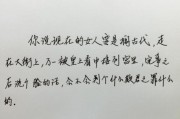 你说现在的女人要是搁古代,走
在大街上,万一被皇上看中接到宫里,完事之
后洗个脸的话,会不会判个什么欺君之罪什么
的.